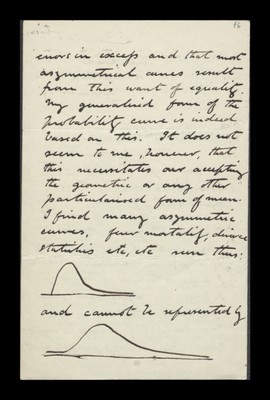 errors in excess and that most
asymmetrical curves result
from this want of equality.
My generalised form of the
probability curve is indeed
based on this. It does not
seem to me, however, that
this necessitates our accepting
the geometric or any other
particularised form of mean.
I find many asymmetric
curves, fever mortality, divorce
statistics etc, etc run thus:
and cannot be represented by